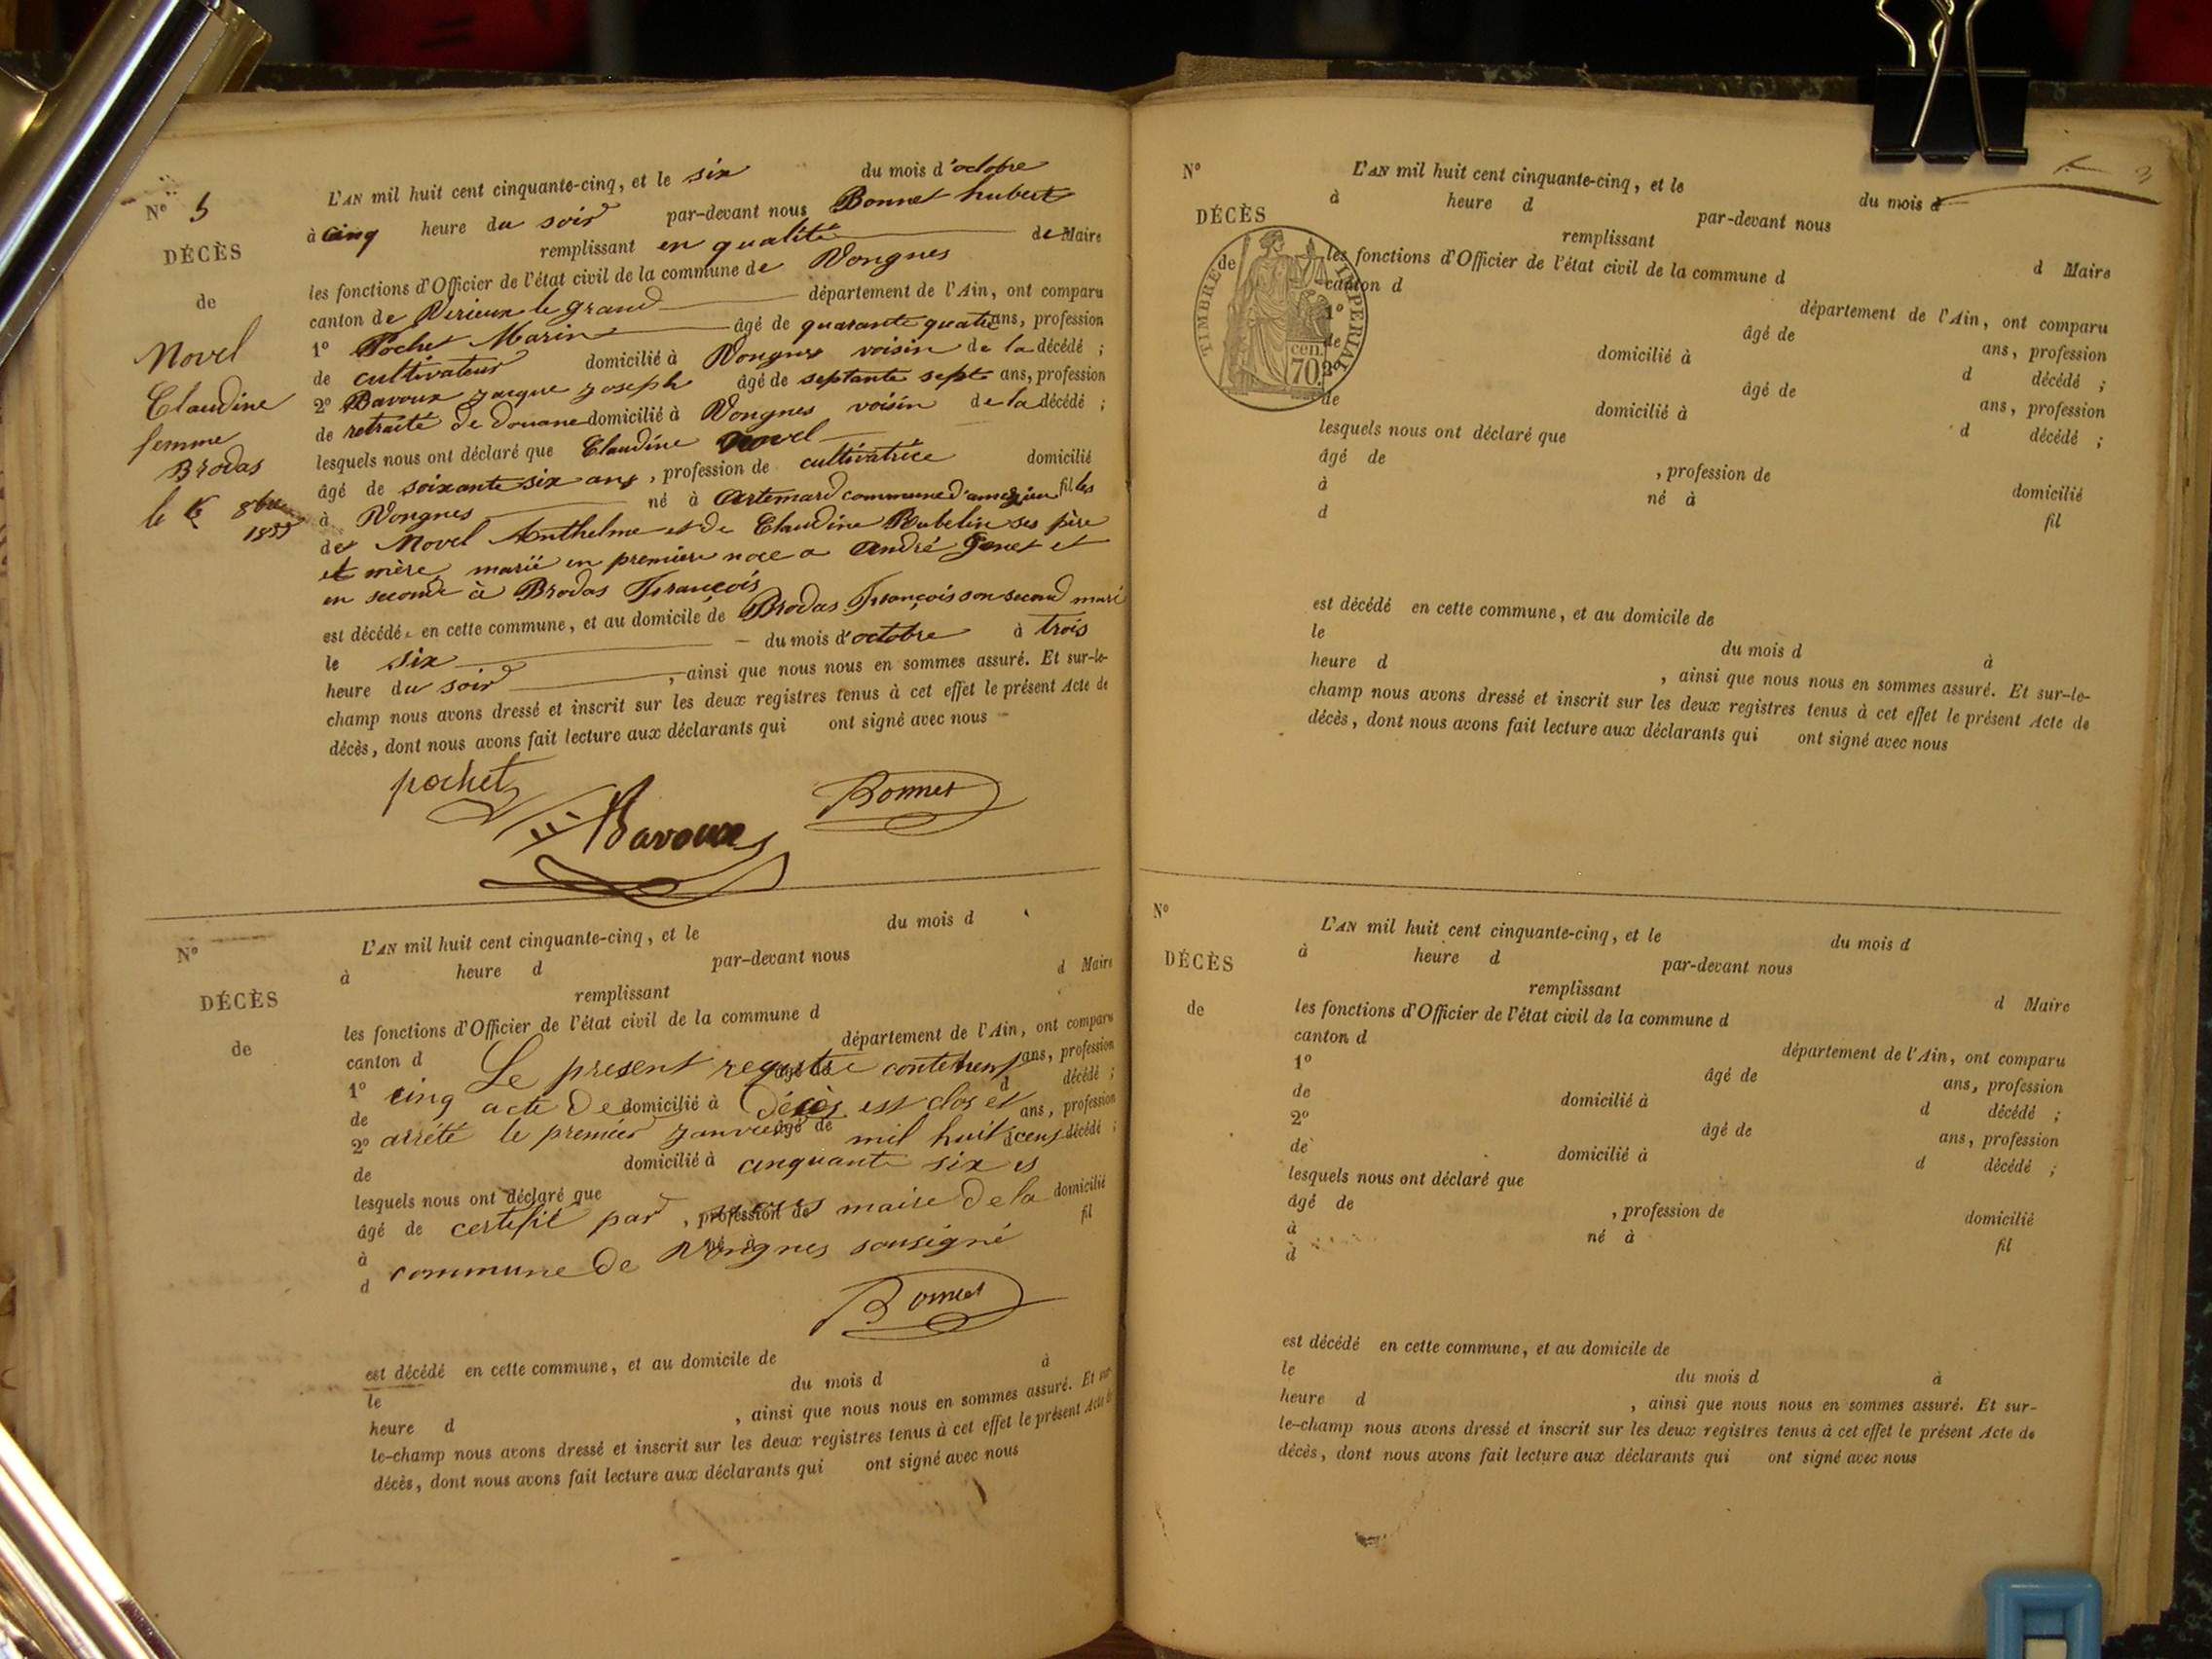 N° 5
DÉCÈS
de
Novel
Claudine
femme
Brodas
le 6 8bre
1855
L'AN mil huit cent cinquante-cinq, et le six du mois d'octobre
à cinq heure du soir par-devant nous Bonnet hubert
remplissant en qualité de Maire
les fonctions d'Officier de l'état civil de la commune de Vongnes
canton de Virieux le grand département de l'Ain, ont comparu
1° Pochet Marin âgé de quarante quatre ans, profession
de cultivateur domicilié à Vongnes voisin de la décédé ;
2° Bavoux jacque joseph âgé de septante sept ans, profession
de retraité de douane domicilié à Vongnes voisin de la décédé ;
lesquels nous ont déclaré que Claudine Novel
âgé de soixante six ans, profession de cultivatrice domicilié
à Vongnes né à Artemard commune d'ameyzieu fil les
de Novel Anthelme et de Claudine Rubelin ses père
et mère, marié en premiere noce a André Genet et
en seconde à Brodas François
est décédé, en cette commune, et au domicile de Brodas François son second mari
le six du mois d'octobre à trois
heure du soir, ainsi que nous nous en sommes assuré. Et sur-le-
champ nous avons dressé et inscrit sur les deux registres tenus à cet effet le présent Acte de
décès, dont nous avons fait lecture aux déclarants qui ont signé avec nous
pochet
Bavoux
Bonnet
N°
DÉCÈS
de
L'AN mil huit cent cinquante-cinq, et le du mois d
à heure d par-devant nous
remplissant d Maire
les fonctions d'Officier de l'état civil de la commune d
canton d département de l'Ain, ont comparu
1° âgé de ans, profession
Le present registre contenent
de domicilié à d décédé ;
cinq acte de décès est clos et
2° âgé de ans, profession
arrété le premier janvier mil huit cent
de domicilié à d décédé ;
cinquante six et
lesquels nous ont déclaré que
âgé de , profession de domicilié
certifié par nous maire de la
à né à fil
d
commune de Vongnes sousigné
Bonnet
est décédé en cette commune, et au domicile de
le du mois d à
heure d , ainsi que nous nous en sommes assuré. Et sur
le-champ nous avons dressé et inscrit sur les deux registres tenus à cet effet le présent Acte de
décès, dont nous avons fait lecture aux déclarants qui ont signé avec nous
3
N°
DÉCÈS
de
TIMBRE IMPERIAL
70 cen.
L'AN mil huit cent cinquante-cinq, et le du mois d
à heure d par-devant nous
remplissant d Maire
les fonctions d'Officier de l'état civil de la commune d
canton d département de l'Ain, ont comparu
1° âgé de ans, profession
de domicilié à d décédé ;
2° âgé de ans, profession
de domicilié à d décédé ;
lesquels nous ont déclaré que
âgé de , profession de domicilié
à né à fil
d
est décédé en cette commune, et au domicile de
le du mois d à
heure d , ainsi que nous nous en sommes assuré. Et sur-le-
champ nous avons dressé et inscrit sur les deux registres tenus à cet effet le présent Acte de
décès, dont nous avons fait lecture aux déclarants qui ont signé avec nous
N°
DÉCÈS
de
L'AN mil huit cent cinquante-cinq, et le du mois d
à heure d par-devant nous
remplissant d Maire
les fonctions d'Officier de l'état civil de la commune d
canton d département de l'Ain, ont comparu
1° âgé de ans, profession
de domicilié à d décédé ;
2° âgé de ans, profession
de domicilié à d décédé ;
lesquels nous ont déclaré que
âgé de , profession de domicilié
à né à fil
d
est décédé en cette commune, et au domicile de
le du mois d à
heure d , ainsi que nous nous en sommes assuré. Et sur-
le-champ nous avons dressé et inscrit sur les deux registres tenus à cet effet le présent Acte de
décès, dont nous avons fait lecture aux déclarants qui ont signé avec nous